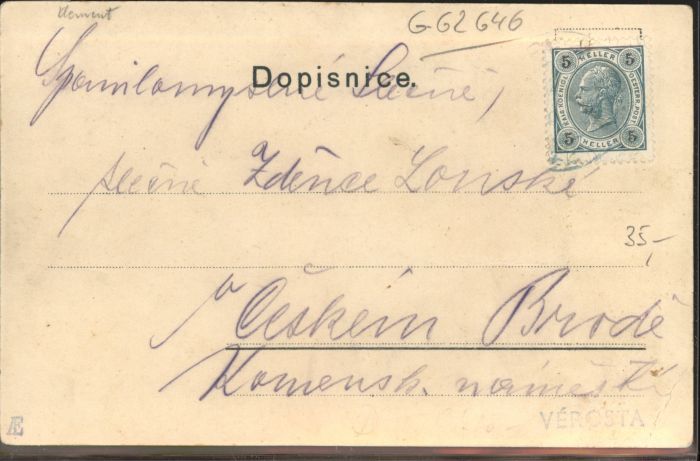 klement
G-62646
Dopisnice.
Spanilomyslné Slečně,
5 HELLER 5
KAIS. KOENIGL. OESTERR. POST.
5 HELLER 5
slečně Zdeňce Lonské
35,-
v Českém Brodě
Komensk. náměstí
VÉROSTA
Æ